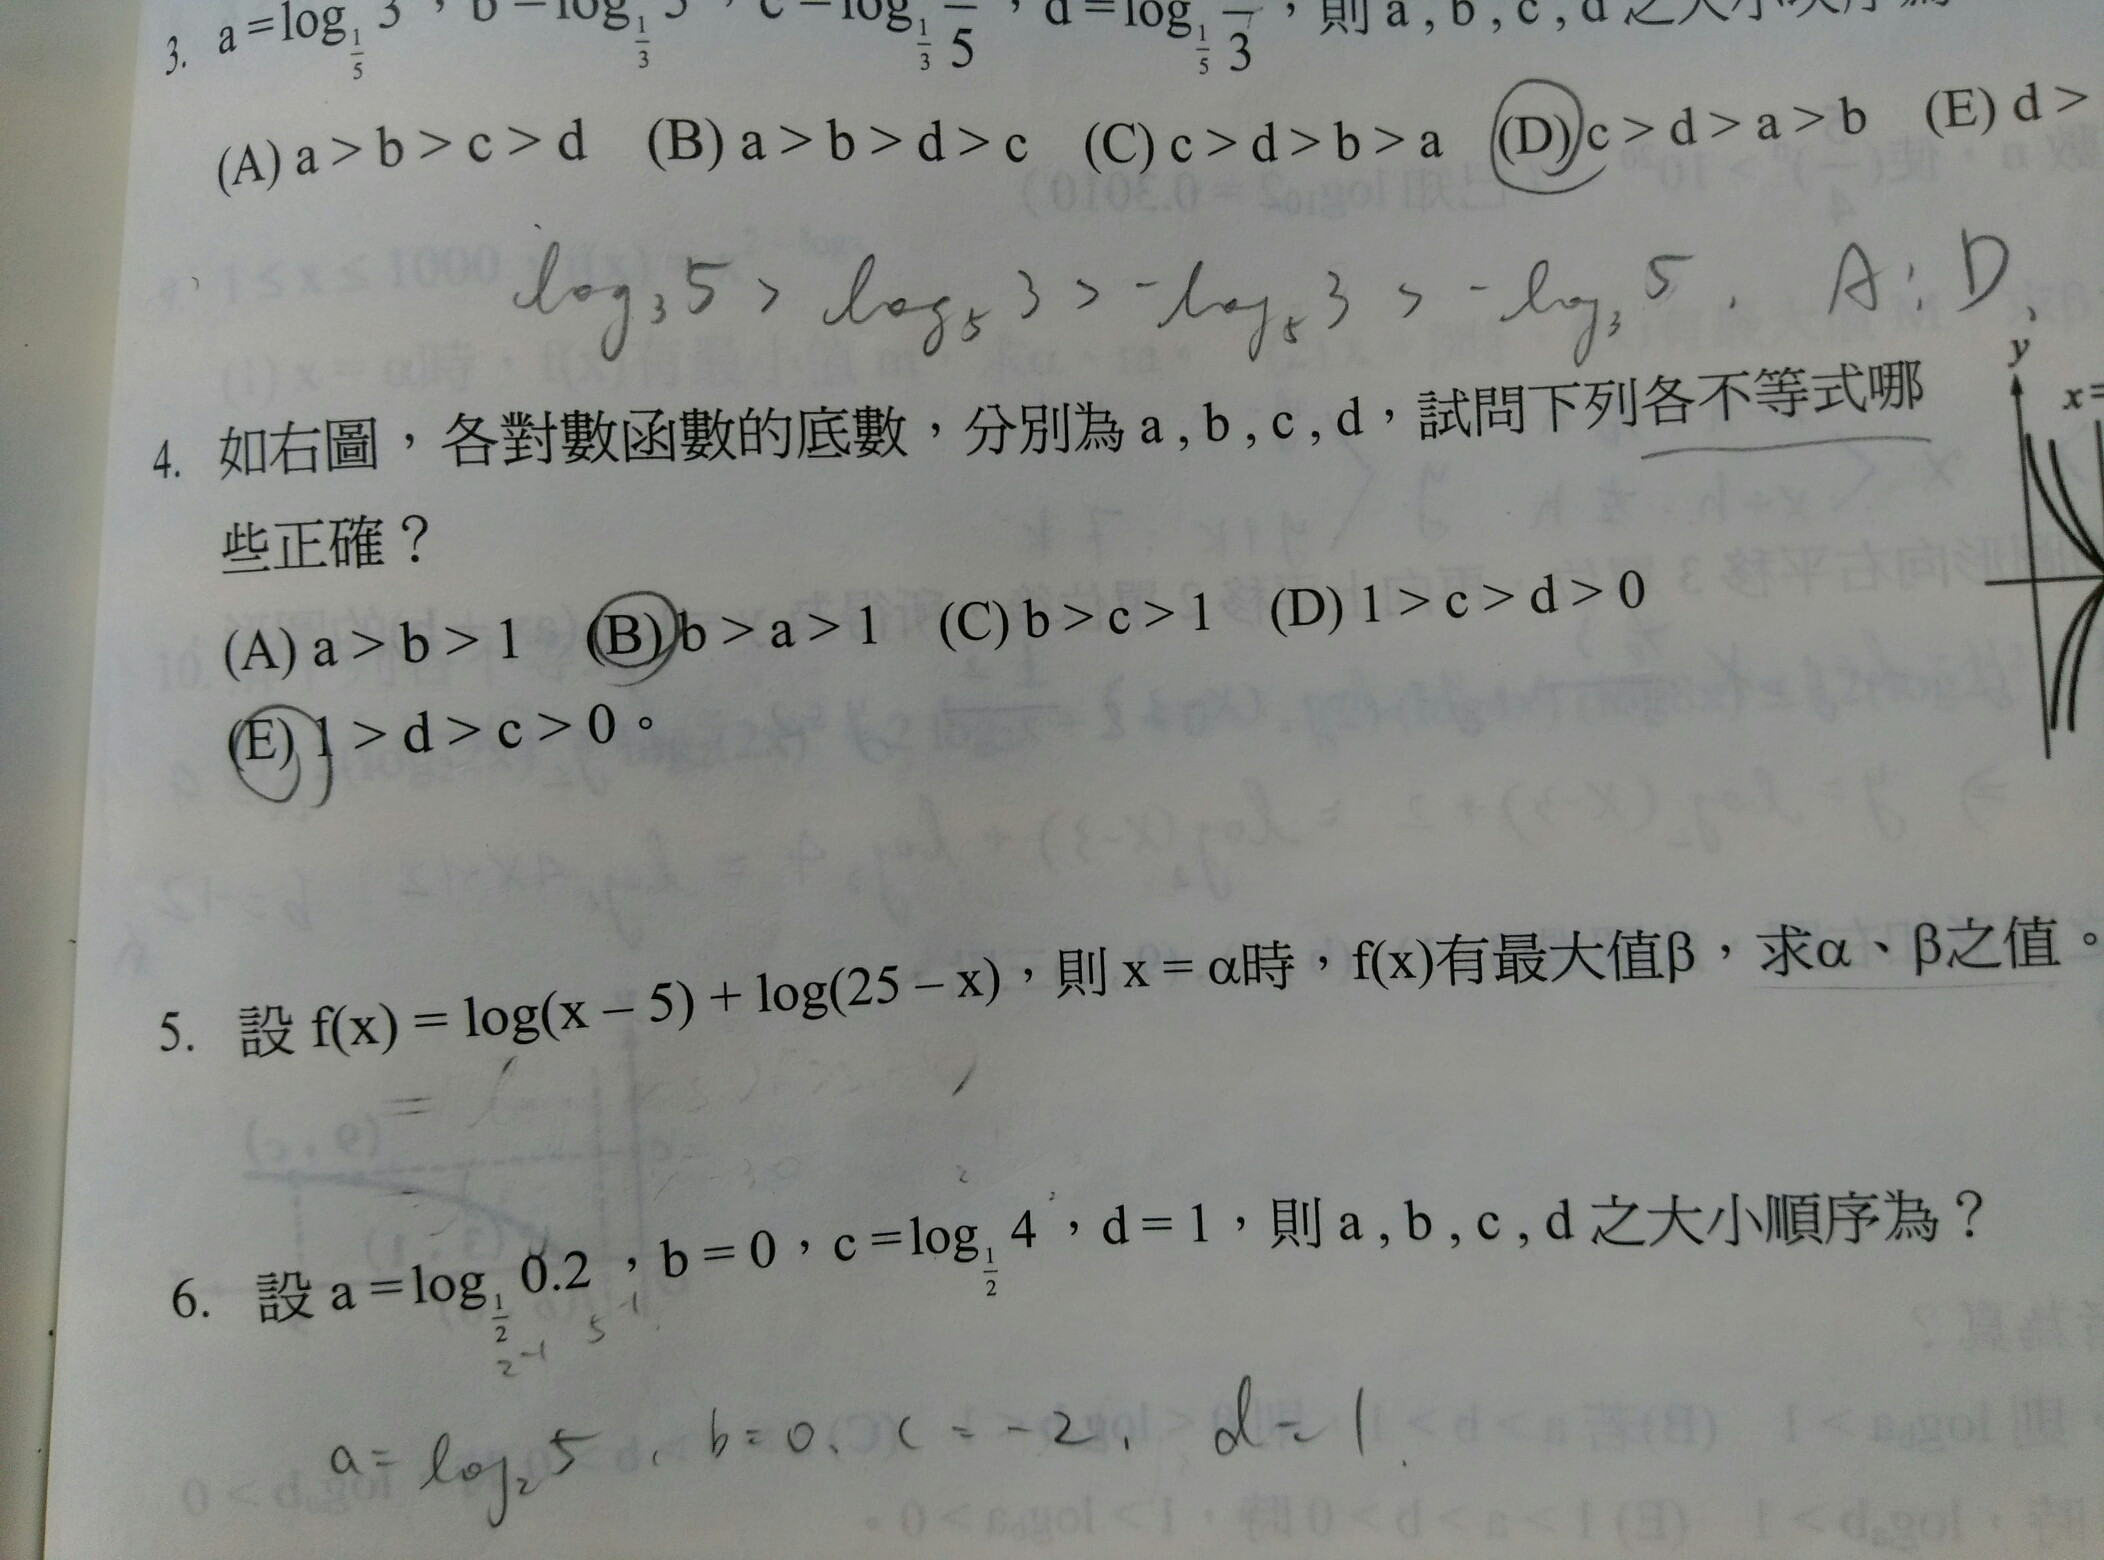 3. a=log_{1/5} 3，b=log_{1/3} 5，c=log_{1/3} 1/5，d=log_{1/5} 1/3，則 a , b , c , d 之大小次序為
(A) a > b > c > d (B) a > b > d > c (C) c > d > b > a (D) c > d > a > b (E) d >
log₃5 > log₅3 > -log₅3 > -log₃5 . A: D.
4. 如右圖，各對數函數的底數，分別為 a , b , c , d，試問下列各不等式哪
y
x=
些正確？
(A) a > b > 1 (B) b > a > 1 (C) b > c > 1 (D) 1 > c > d > 0
(E) 1 > d > c > 0。
5. 設 f(x) = log(x – 5) + log(25 – x)，則 x = α時，f(x)有最大值β，求α、β之值。
6. 設 a =log_{1/2} 0.2，b = 0，c =log_{1/2} 4，d = 1，則 a , b , c , d 之大小順序為？
2⁻¹ 5⁻¹
a= log₂5, b=0, c=-2, d=1.